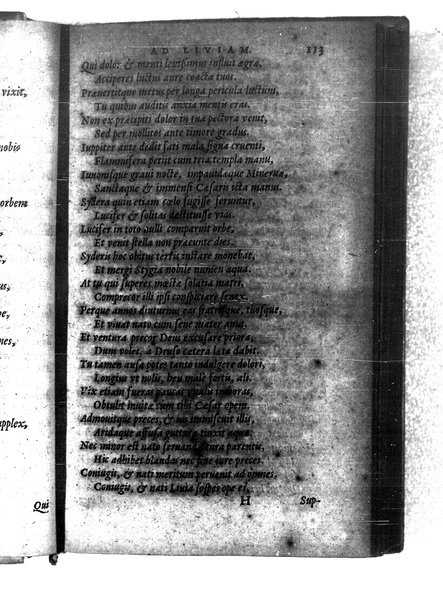 vixit,
nobis
orbem
pplex,
Qui
AD LIVIAM. 113
Qui dolor & menti levißimus influit ægræ,
Acciperes luctus aure coacta tuos.
Prævertitque metus per longa pericula luctum,
Tu quibus auditis anxia mentis eras.
Non ex præcipiti dolor in tua pectora venit,
Sed per mollitos ante timore gradus.
Iuppiter ante dedit fati mala signa cruenti,
Flammifera petiit cum tria templa manu,
Iunonisque gravi nocte, impavidæque Minervæ,
Sanctaque & immensi Cæsaris icta manus.
Sydera quin etiam cœlo fugisse feruntur,
Lucifer & solitas destituisse vias.
Lucifer in toto nulli comparuit orbe,
Et venit stella non præeunte dies.
Syderis hoc obitus terris instare monebat,
Et mergi Stygia nobile numen aqua.
At tu qui superes mœstæ solatia matri,
Comprecor illi ipsi conspiciare senex.
Perque annos diuturnus eas fratrisque, tuosque,
Et vivat nato cum sene mater anus.
Et ventura precor Deus excusare priora,
Dum volet, à Druso cætera læta dabit.
Tu tamen ausa potes tanto indulgere dolori,
Longius ut nolis, heu male fortis, ali.
Vix etiam fueras paucas vitalis in horas,
Obtulit invitæ cum tibi Cæsar opem.
Admovitque preces, & ius immiscuit illis,
Aridaque affusa guttura tinxit aqua.
Nec minor est nato servandæ cura parentis,
Hic adhibet blandas nec sine iure preces.
Coniugis, & nati meritum pervenit ad omnes,
Coniugis, & nati Livia sospes ope es.
H Sup-